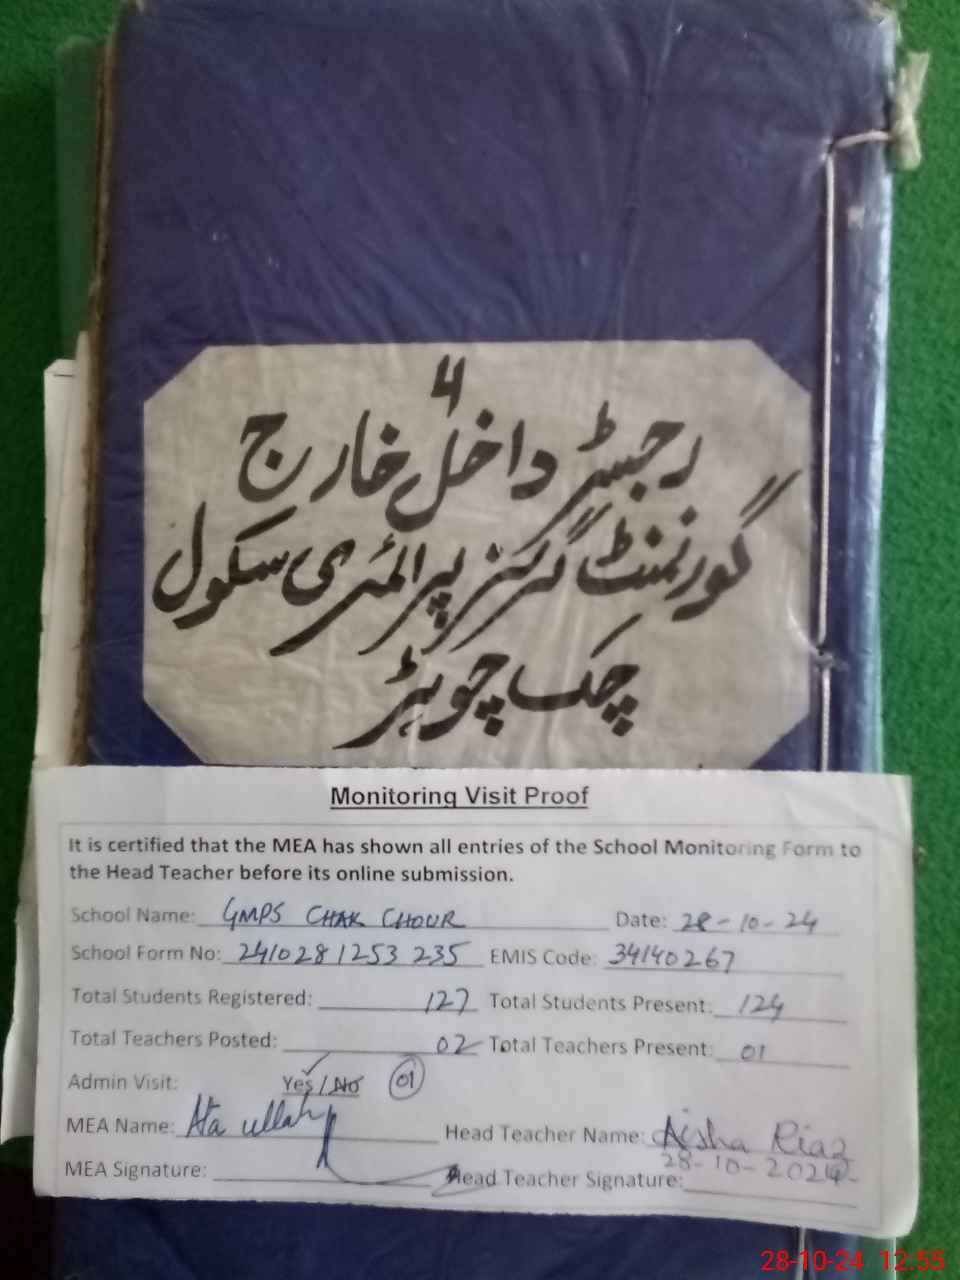 4
رجسٹر داخل خارج
گورنمنٹ گرلز پرائمری سکول
چک چوہڑ
Monitoring Visit Proof
It is certified that the MEA has shown all entries of the School Monitoring Form to
the Head Teacher before its online submission.
School Name: GMPS CHAK CHOUR Date: 28-10-24
School Form No: 2410281253 235 EMIS Code: 34140267
Total Students Registered: 127 Total Students Present: 124
Total Teachers Posted: 02 Total Teachers Present: 01
Admin Visit: Yes/No 01
MEA Name: Ata ullah Head Teacher Name: Aisha Riaz
28-10-2024
MEA Signature: Head Teacher Signature:
28-10-24 12:55